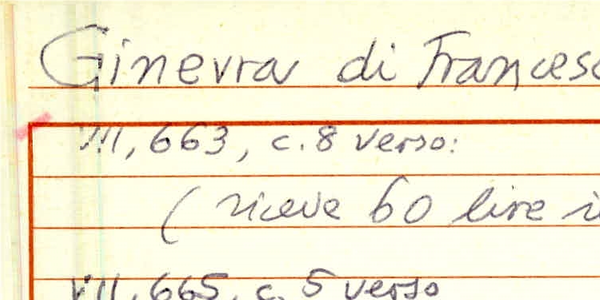 Ginevra di Francesc
VII, 663, c. 8 verso:
( riceve 60 lire i
VII, 665, c. 5 verso